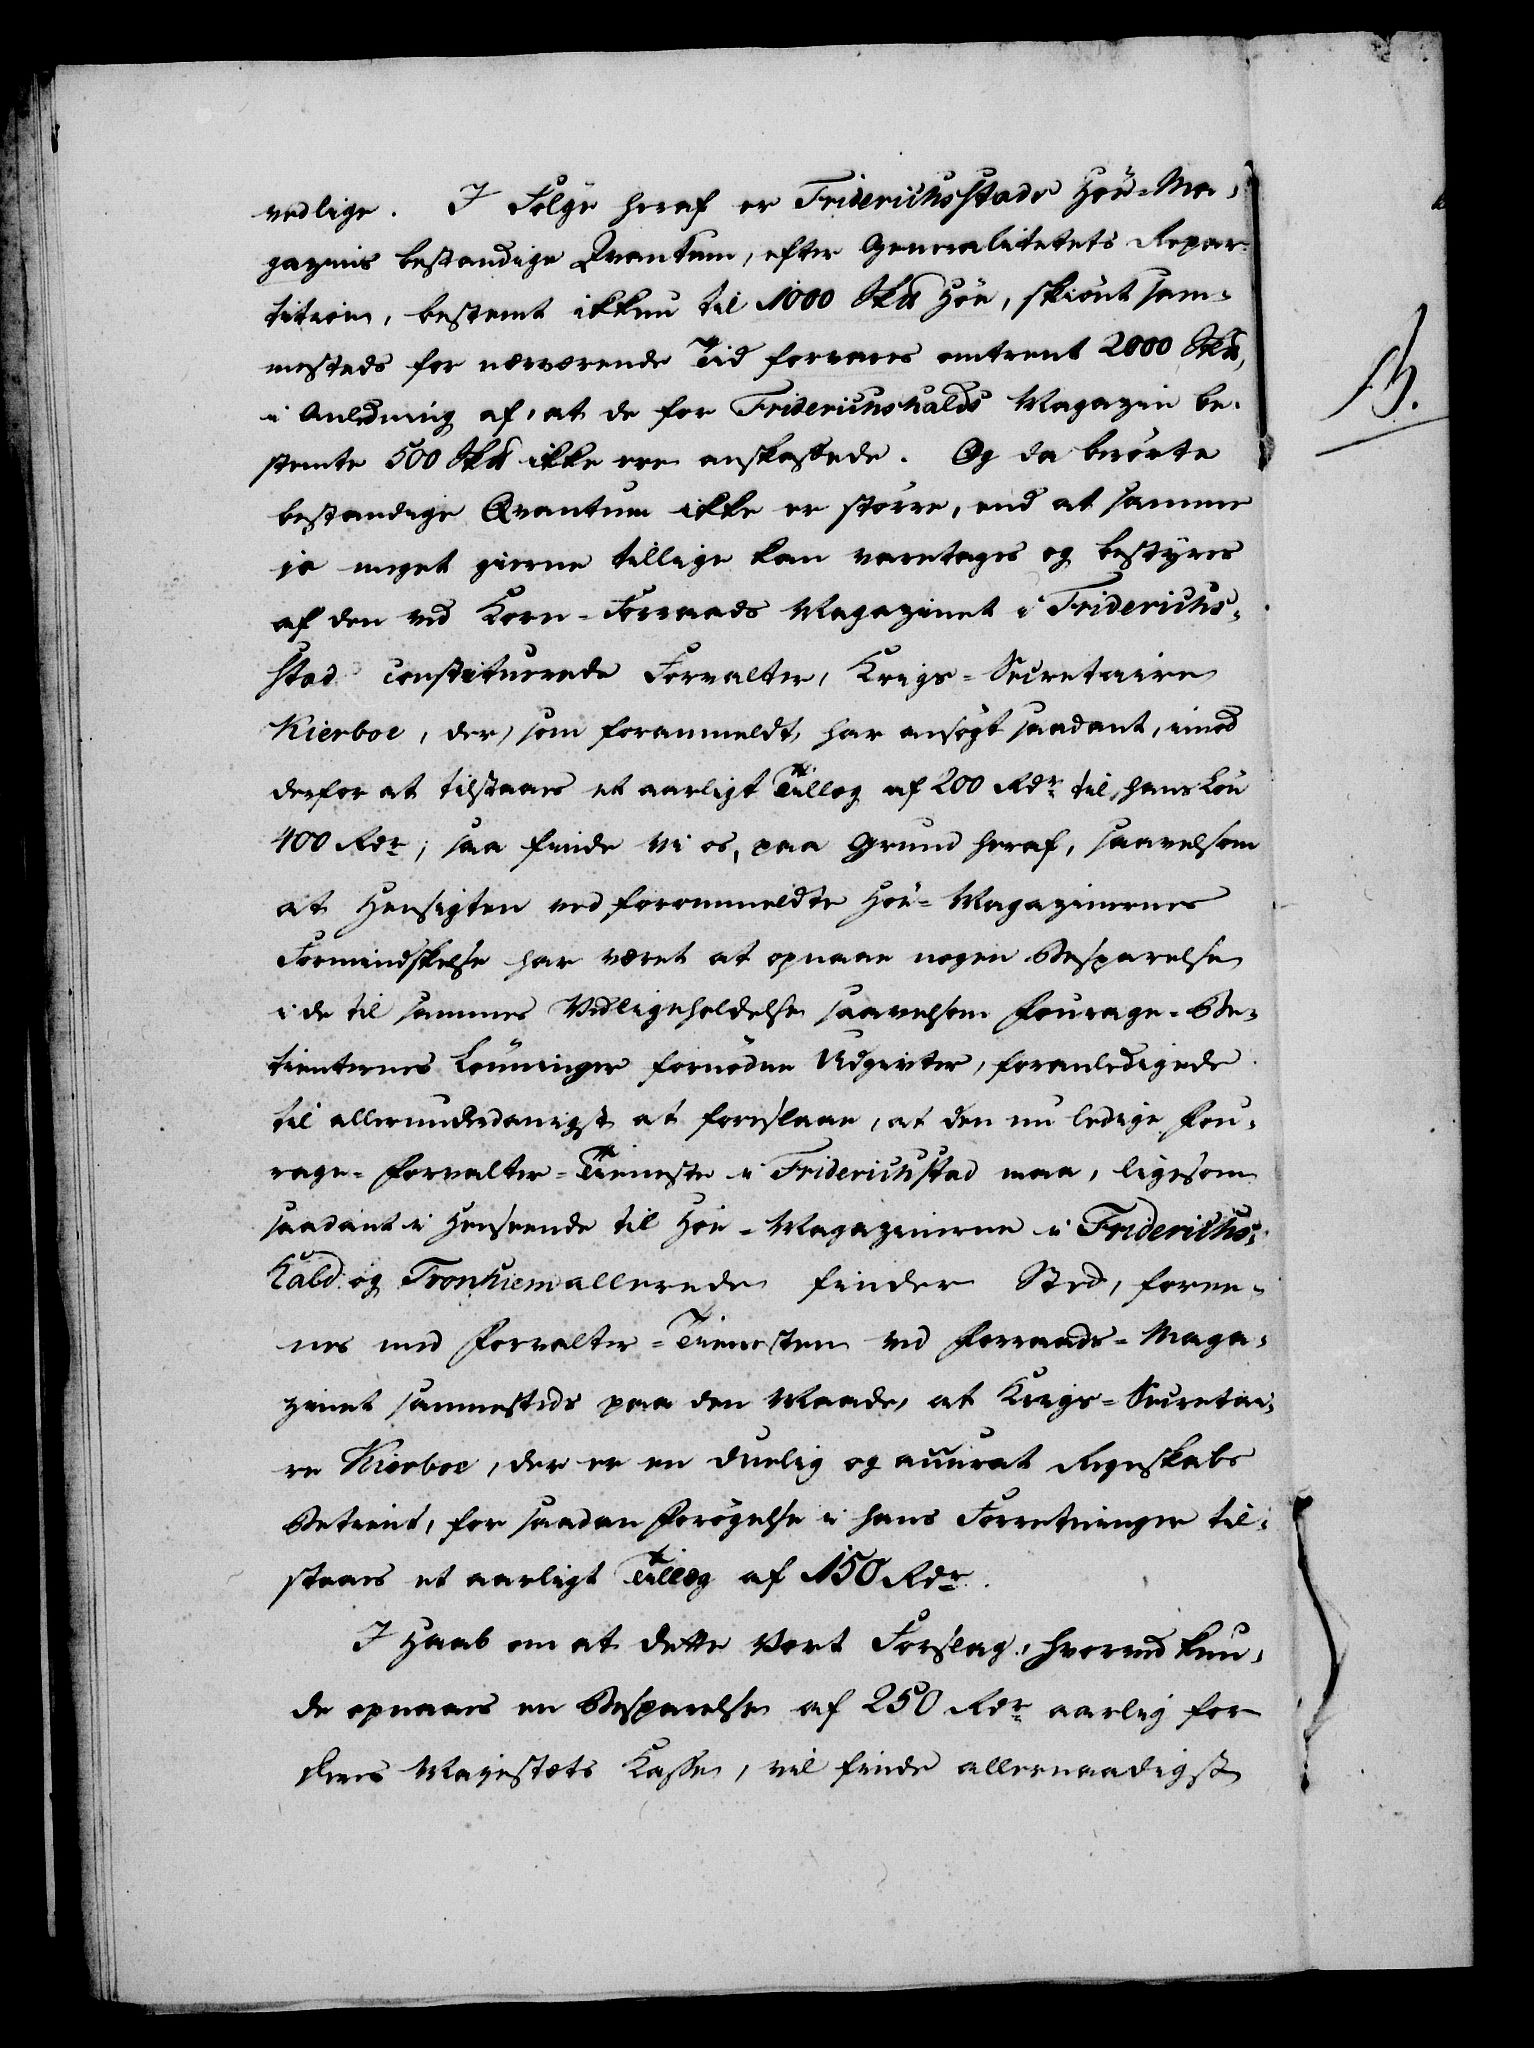 vedlige. I Følge heraf er Friderichsstads Höe-Ma-
gazins bestandige Qvantum, efter Generalitetets Repar-
tition, bestemt ikkun til 1000 Sk℔ Höe, skiönt sam-
mesteds for nærværende Tid forvares omtrent 2000 Sk℔,
i Anledning af, at de for Friderichshalds Magazin be-
stemte 500 Sk℔ ikke ere anskaffede. Og da berörte
bestandige Qvantum ikke er större, end at samme
jo meget gierne tillige kan varetages og bestyres
af den ved Korn-Forraads Magazinet i Friderichs-
stad constituerede Forvalter, Krigs-Secretaire
Kierboe, der, som foranmeldt, har ansögt saadant, imod
derfor at tilstaaes et aarligt Tillæg af 200 Rdr til hans Lön
400 Rdr; saa finde vi os, paa Grund heraf, saavelsom
at Hensigten ved foranmeldte Höe-Magaziners
Formindskelse har været at opnaae nogen Besparelse
i de til sammes Vedligeholdelse saavelsom Fourage-Be-
tienternes Lönninger fornödne Udgivter, foranledigede
til allerunderdanigst at foreslaae, at den nu ledige Fou-
rage-Forvalter-Tieneste i Friderichstad maa, ligesom
saadant i Henseende til Höe-Magazinerne i Friderichs-
hald og Tronhiem allerede finder Sted, foree-
nes med Forvalter-Tienesten ved Forraads-Maga-
zinet sammesteds paa den Maade, at Krigs-Secretai-
re Kierboe, der er en duelig og accurat Regnskabs
Betient, for saadan Forögelse i hans Forretninger til-
staaes et aarligt Tillæg af 150 Rdr.
I Haab om at dette Vort Forslag, hvorved kun-
de opnaaes en Besparelse af 250 Rdr aarlig for
Deres Majestæts Kasse, vil finde allernaadigst